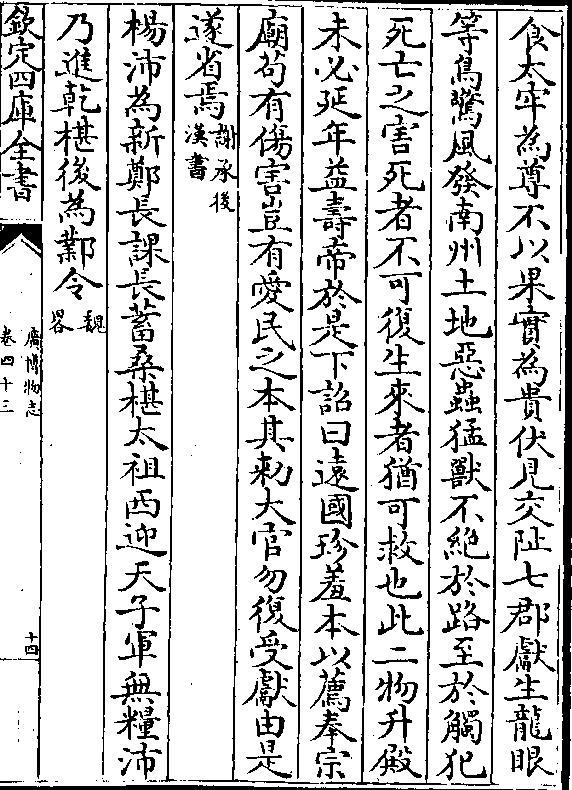 食太牢為尊不以果實為貴伏見交阯七郡獻生龍眼
等鳥驚風發南州土地惡蟲猛獸不絶於路至於觸犯
死亡之害死者不可復生來者猶可救也此二物升殿
未必延年益壽帝於是下詔曰遠國珍羞本以薦奉宗
廟茍有傷害豈有愛民之本其勅大官勿復受獻由是
遂省焉謝承後漢書
楊沛為新鄭長課長蓄桑椹太祖西迎天子軍無糧沛
乃進乾椹後為鄴令魏畧
欽定四庫全書
廣博物志
卷四十三
十四